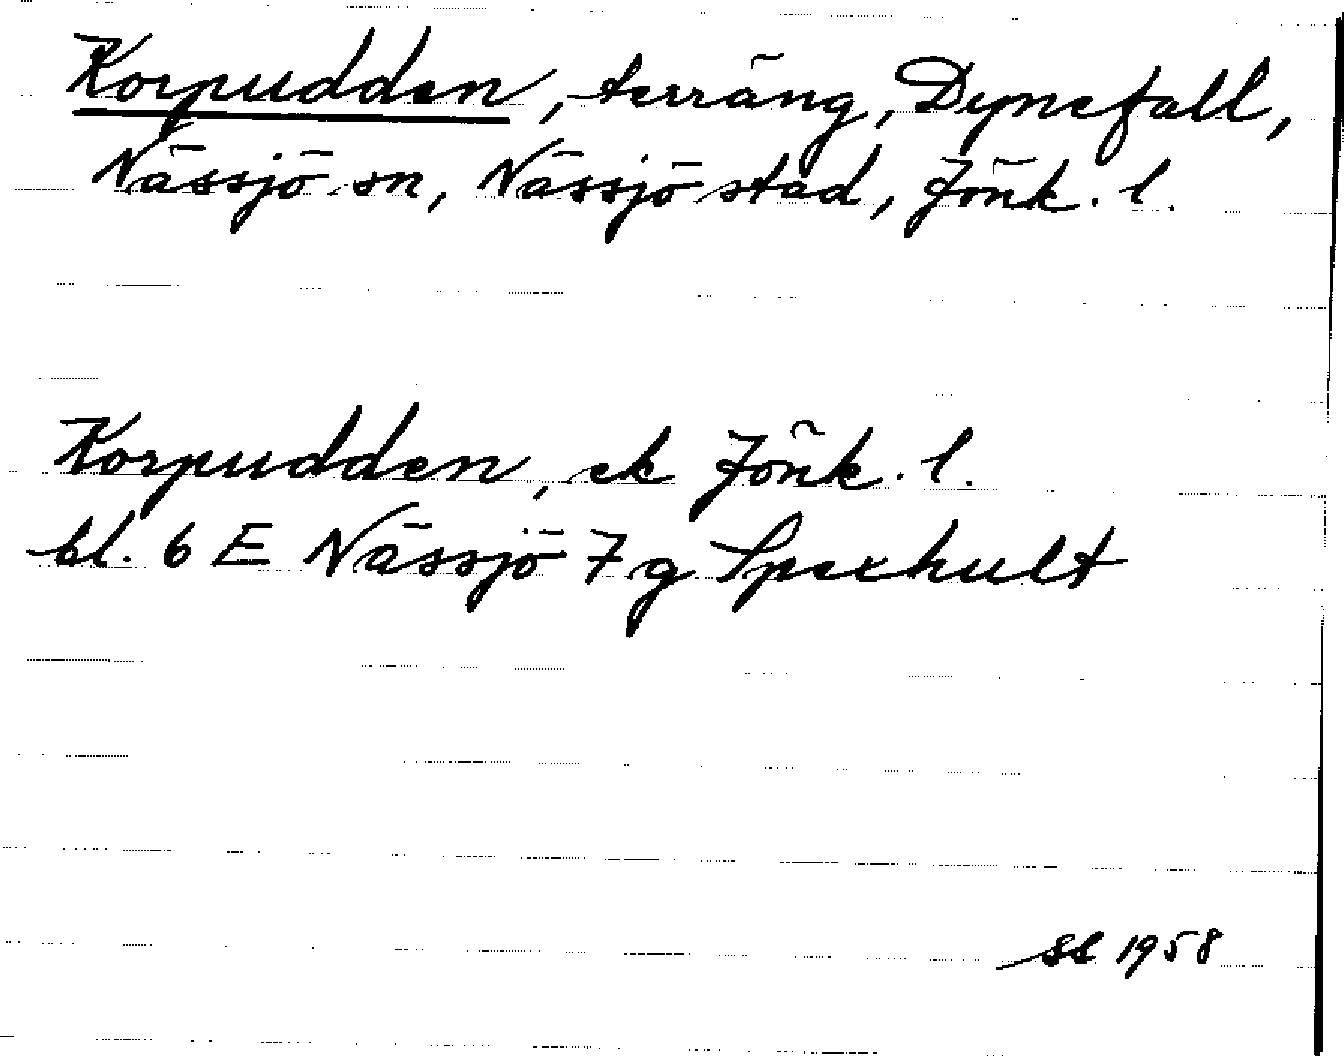 Korpudden, terräng, Dynefall,
Nässjö sn, Nässjö stad, Jönk. l.
Korpudden, ek Jönk. l.
bl. 6 E Nässjö 7 g Spexhult
1958